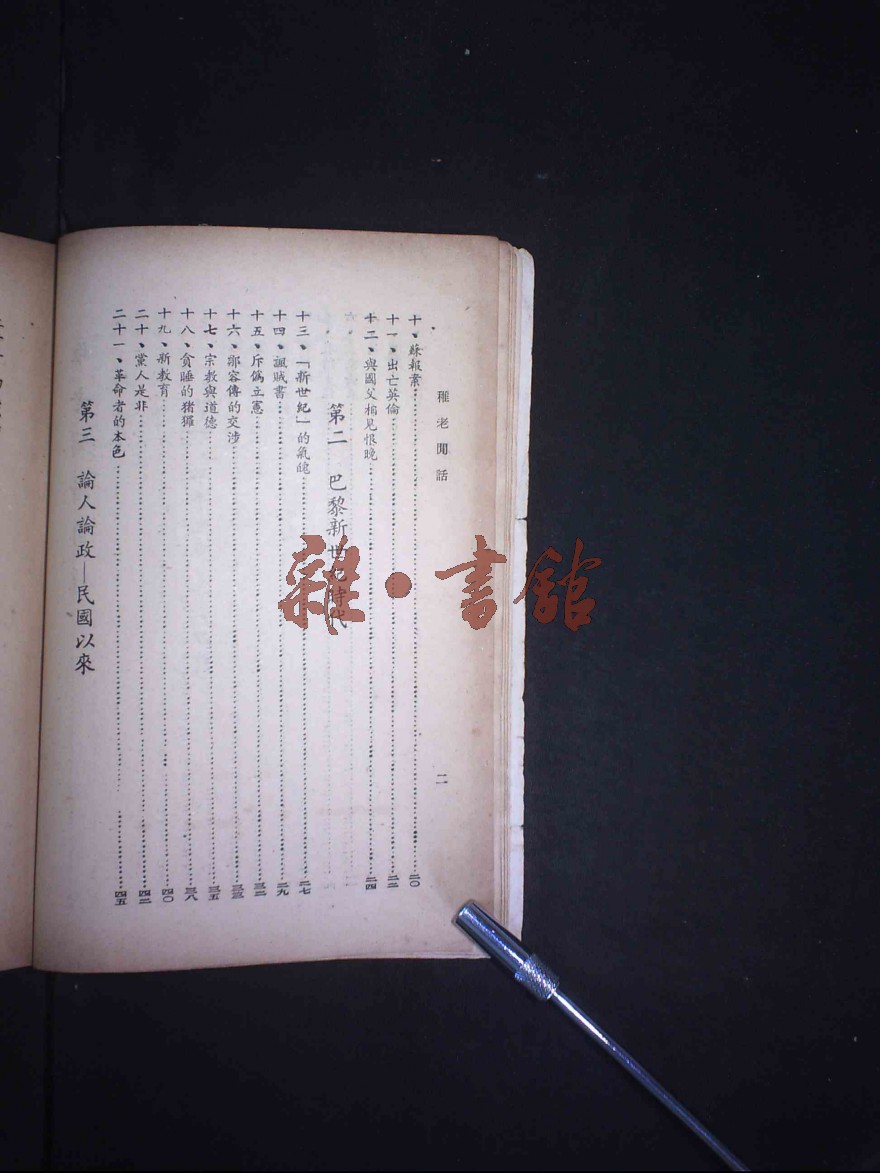 稚老閒話
二
十、蘇報案二〇
十一、出亡英倫二二
十二、與國父相見恨晚二四
第二 巴黎新世紀時代
十三、「新世紀」的氣魄二七
十四、諷賊書二九
十五、斥僞立憲三二
十六、鄒容傳的交涉三三
十七、宗教與道德三五
十八、貪睡的猪玀三八
十九、新教育四〇
二十、黨人是非四二
二十一、革命者的本色四五
第三 論人論政—民國以來
雜·書館